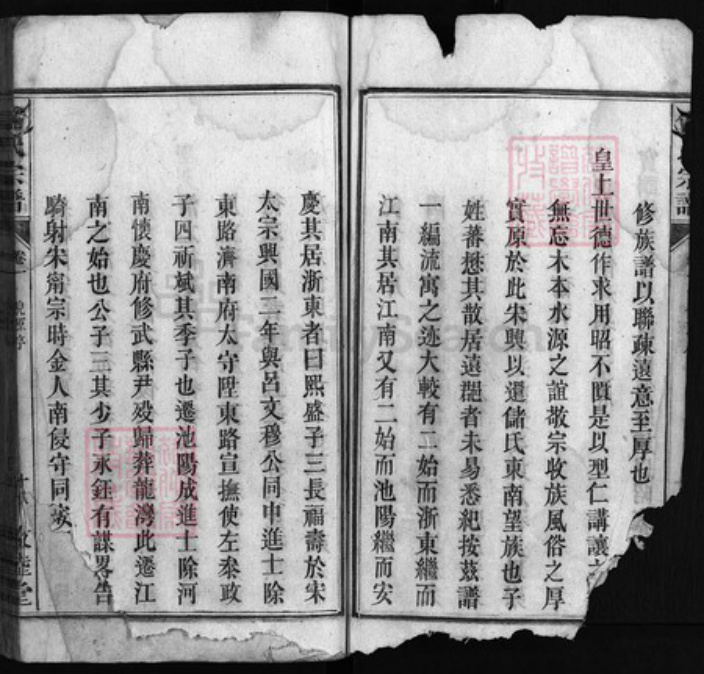 修族譜以聯疎遠意至厚也
皇上世德作求用昭不匱是以型仁講讓
無忘木本水源之誼敬宗收族風俗之厚
實原於此宋興以還儲氏東南望族也子
姓蕃懋其散居遠者未易悉紀按茲譜
一編流寓之迹大較有二始而浙東繼而
江南其居江南又有二始而池陽繼而安
慶其居浙東者曰熙盛子三長福壽於宋
太宗興國二年與呂文穆公同中進士除
東路濟南府太守陞東路宣撫使左叅政
子四祈斌其季子也遷池陽成進士除河
南懷慶府修武縣尹歿歸葬龍灣此遷江
南之始也公子三其少子承鈺有謀畧告
騎射宋甯宗時金人南侵守同
氏宗譜
卷一
FamilySearch